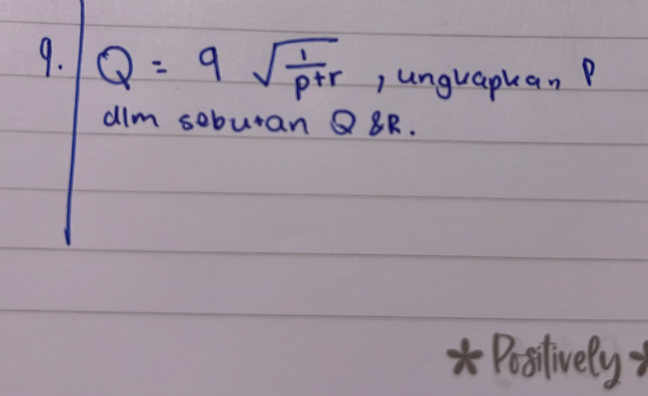 9. Q = 9 √1/p+r , ungkapkan P
dlm sebutan Q &R.
* Positively *